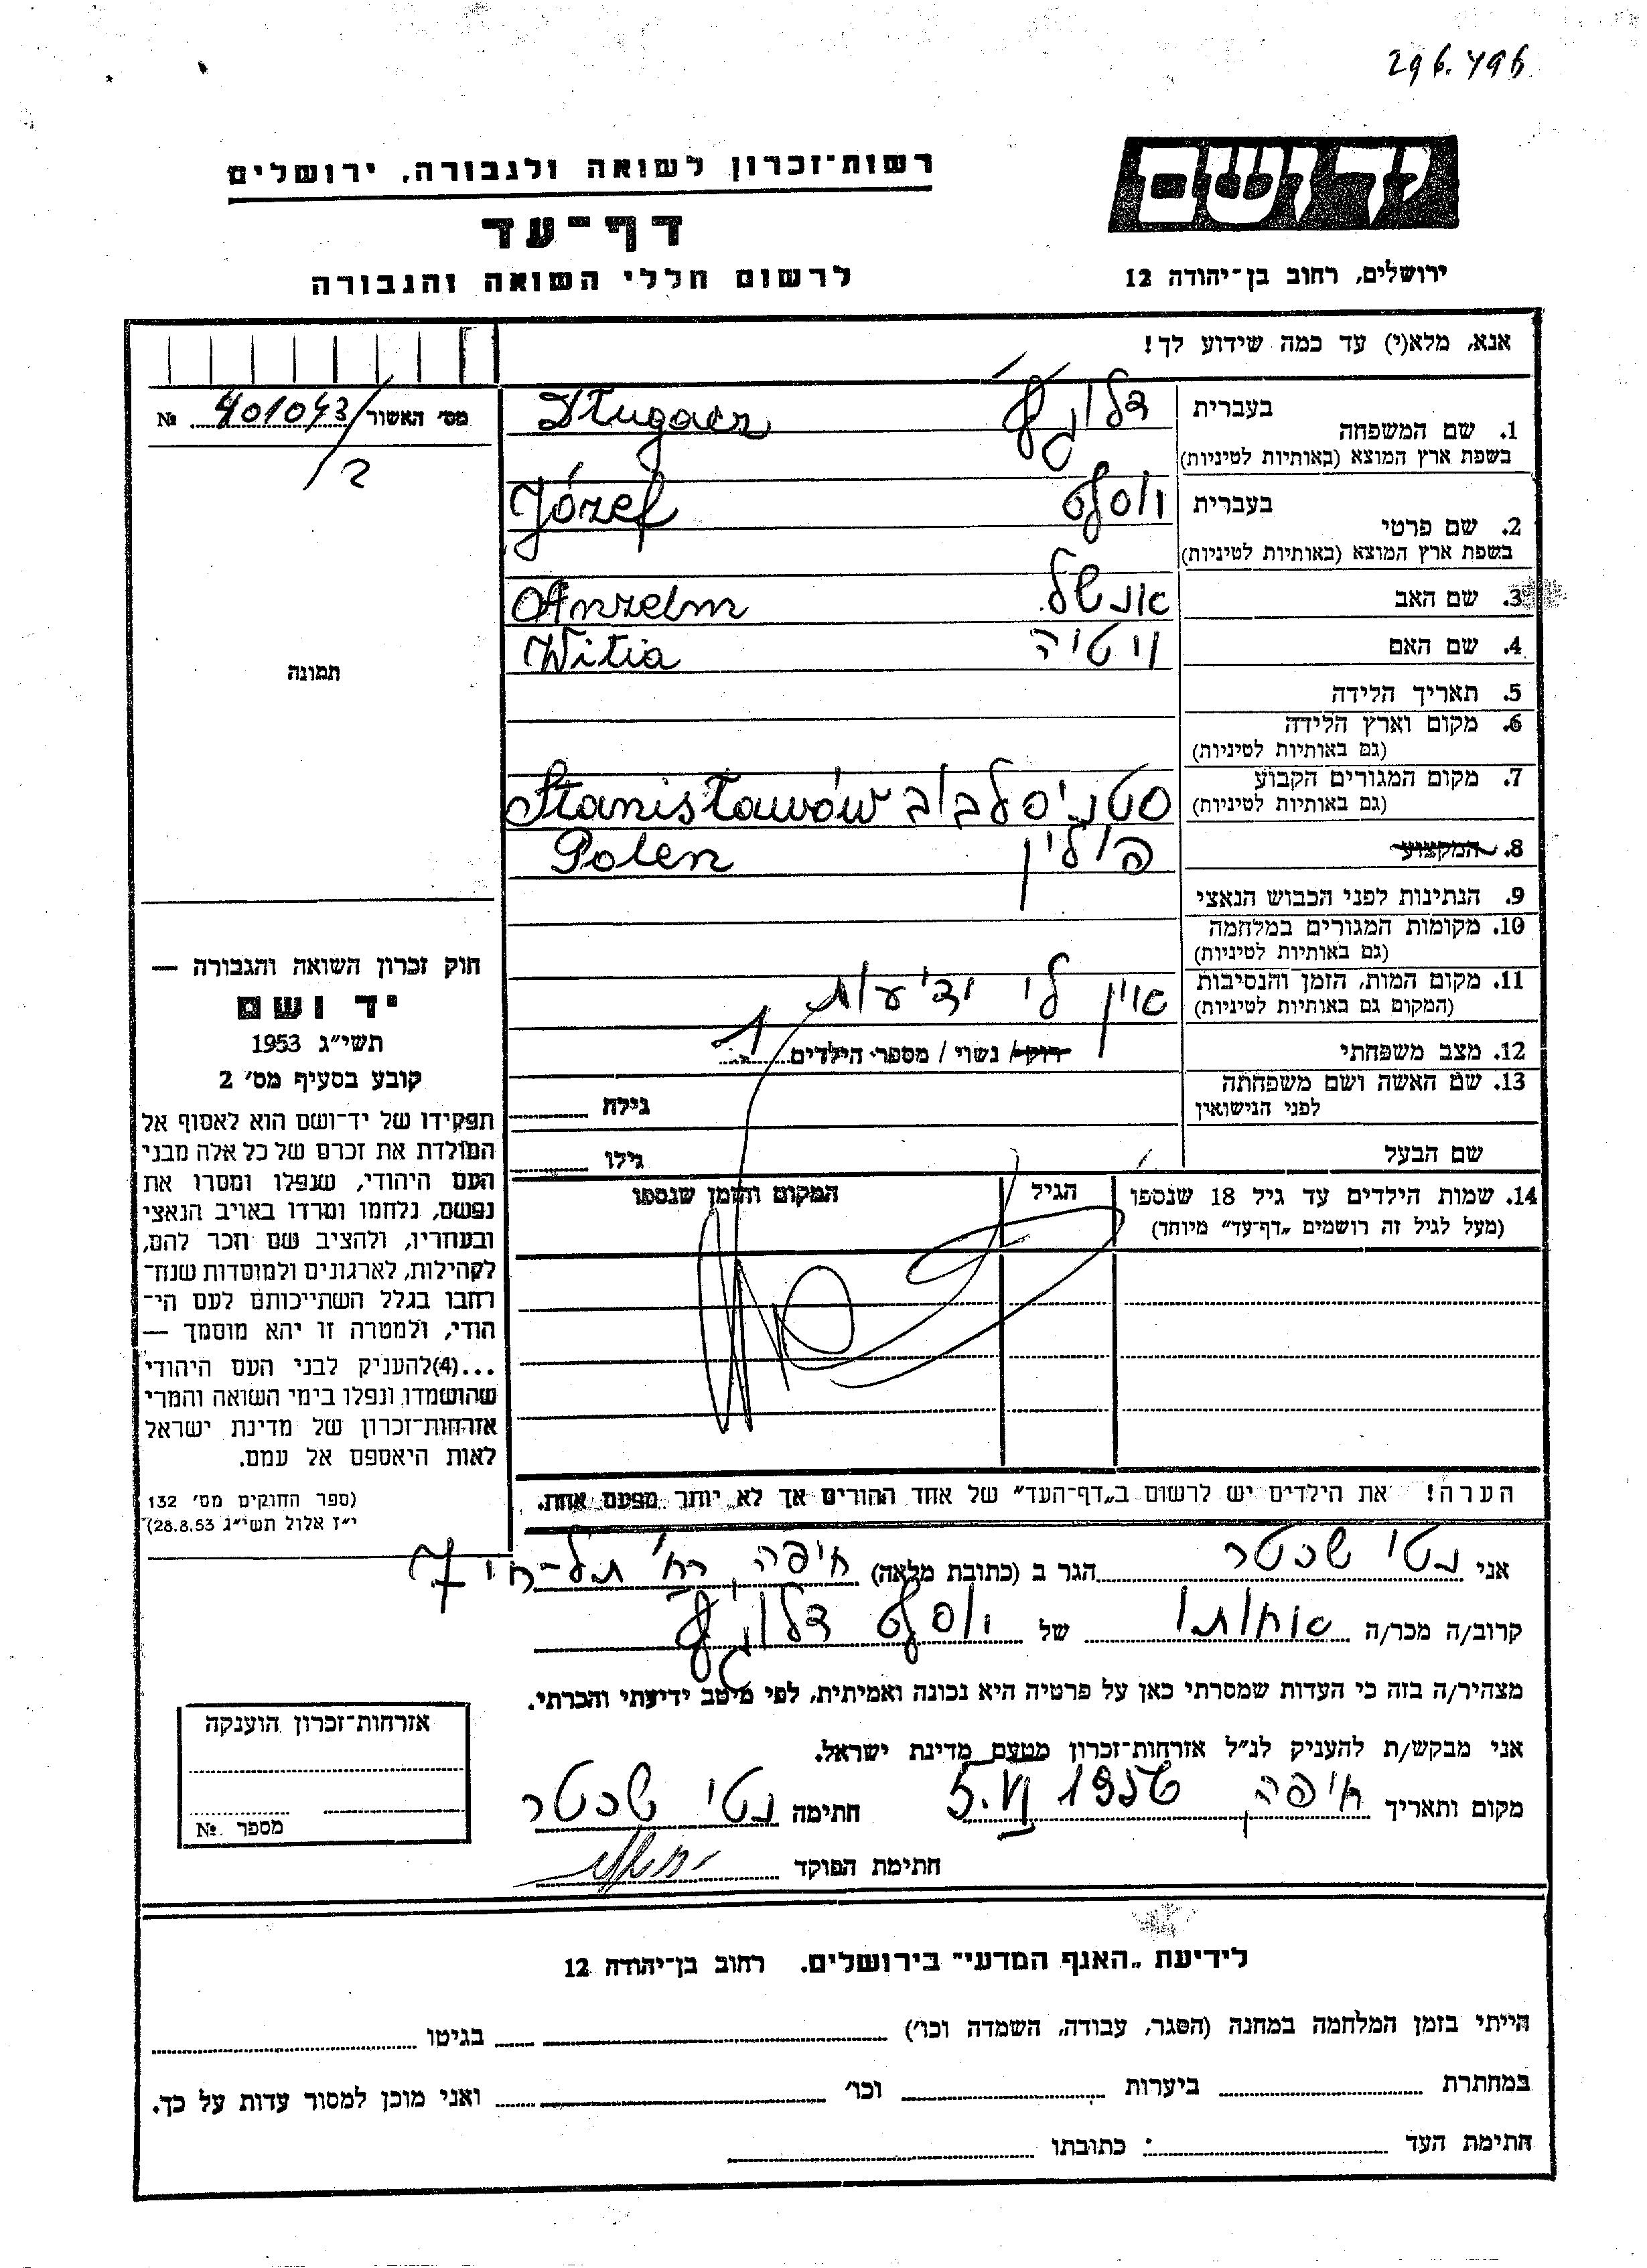 296.496
יד ושם
רשות־זכרון לשואה ולגבורה, ירושלים
דף־עד
לרשום חללי השואה והגבורה
ירושלים, רחוב בן־יהודה 12
אנא, מלא(י) עד כמה שידוע לך!
מס׳ האשור 401043/2 №
1. שם המשפחה בעברית
בשפת ארץ המוצא (באותיות לטיניות)
Długacz
2. שם פרטי בעברית יוסף
בשפת ארץ המוצא (באותיות לטיניות)
Józef
3. שם האב אנשל Anzelm
4. שם האם ויטיה Witia
5. תאריך הלידה
6. מקום וארץ הלידה
(גם באותיות לטיניות)
7. מקום המגורים הקבוע
(גם באותיות לטיניות)
סטניסלבוב Stanisławów
8. המקצוע פולין Polen
9. הנתינות לפני הכבוש הנאצי
10. מקומות המגורים במלחמה
(גם באותיות לטיניות)
11. מקום המות, הזמן והנסיבות
(המקום גם באותיות לטיניות)
אין לי ידיעות
12. מצב משפחתי רוק / נשוי / מספר הילדים 1
13. שם האשה ושם משפחתה
לפני הנישואין
גילה
שם הבעל גילו
14. שמות הילדים עד גיל 18 שנספו
(מעל לגיל זה רושמים „דף־עד" מיוחד)
הגיל
המקום והזמן שנספו
תמונה
חוק זכרון השואה והגבורה —
יד ושם
תשי״ג 1953
קובע בסעיף מס׳ 2
תפקידו של יד־ושם הוא לאסוף אל
המולדת את זכרם של כל אלה מבני
העם היהודי, שנפלו ומסרו את
נפשם, נלחמו ומרדו באויב הנאצי
ובעוזריו, ולהציב שם וזכר להם,
לקהילות, לארגונים ולמוסדות שנח־
רבו בגלל השתייכותם לעם הי־
הודי, ולמטרה זו יהא מוסמך —
...(4) להעניק לבני העם היהודי
שהושמדו ונפלו בימי השואה והמרי
אזרחות־זכרון של מדינת ישראל
לאות היאספם אל עמם.
(ספר החוקים מס׳ 132
י״ז אלול תשי״ג 28.8.53)
הערה! את הילדים יש לרשום ב„דף־העד" של אחד ההורים אך לא יותר מפעם אחת.
אני נטי שכטר הגר ב (כתובת מלאה) חיפה, רח׳ תל־חי 7
קרוב/ה מכר/ה אחותו של יוסף
מצהיר/ה בזה כי העדות שמסרתי כאן על פרטיה היא נכונה ואמיתית, לפי מיטב ידיעתי והכרתי.
אני מבקש/ת להעניק לנ״ל אזרחות־זכרון מטעם מדינת ישראל.
מקום ותאריך חיפה, 5.VI 1956 חתימה נטי שכטר
חתימת הפוקד
אזרחות־זכרון הוענקה
מספר №
לידיעת „האגף המדעי" בירושלים. רחוב בן־יהודה 12
הייתי בזמן המלחמה במחנה (הסגר, עבודה, השמדה וכו׳) בגיטו
במחתרת ביערות וכו׳ ואני מוכן למסור עדות על כך.
חתימת העד : כתובתו